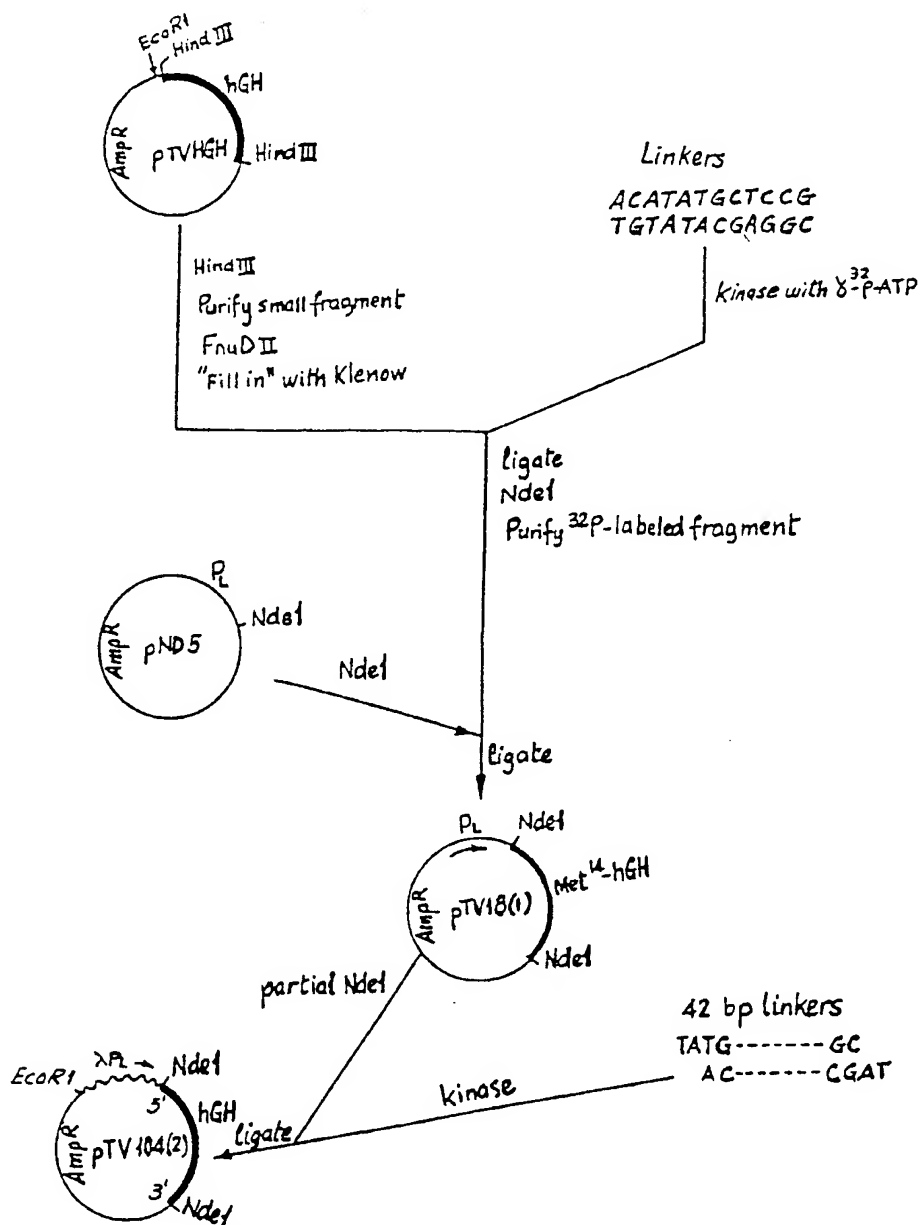 EcoR1
Hind III
hGH
AmpR
pTVHGH
Hind III
Linkers
ACATATGCTCCG
TGTATACGAGGC
Hind III
Purify small fragment
FnuD II
"Fill in" with Klenow
kinase with γ-³²P-ATP
ligate
Nde1
Purify ³²P-labeled fragment
PL
Nde1
AmpR
pND5
Nde1
ligate
PL
Nde1
AmpR
pTV18(1)
Met¹⁴-hGH
Nde1
partial Nde1
42 bp linkers
TATG-------GC
AC-------CGAT
kinase
ligate
EcoR1
λPL
Nde1
5'
hGH
AmpR
pTV104(2)
3'
Nde1